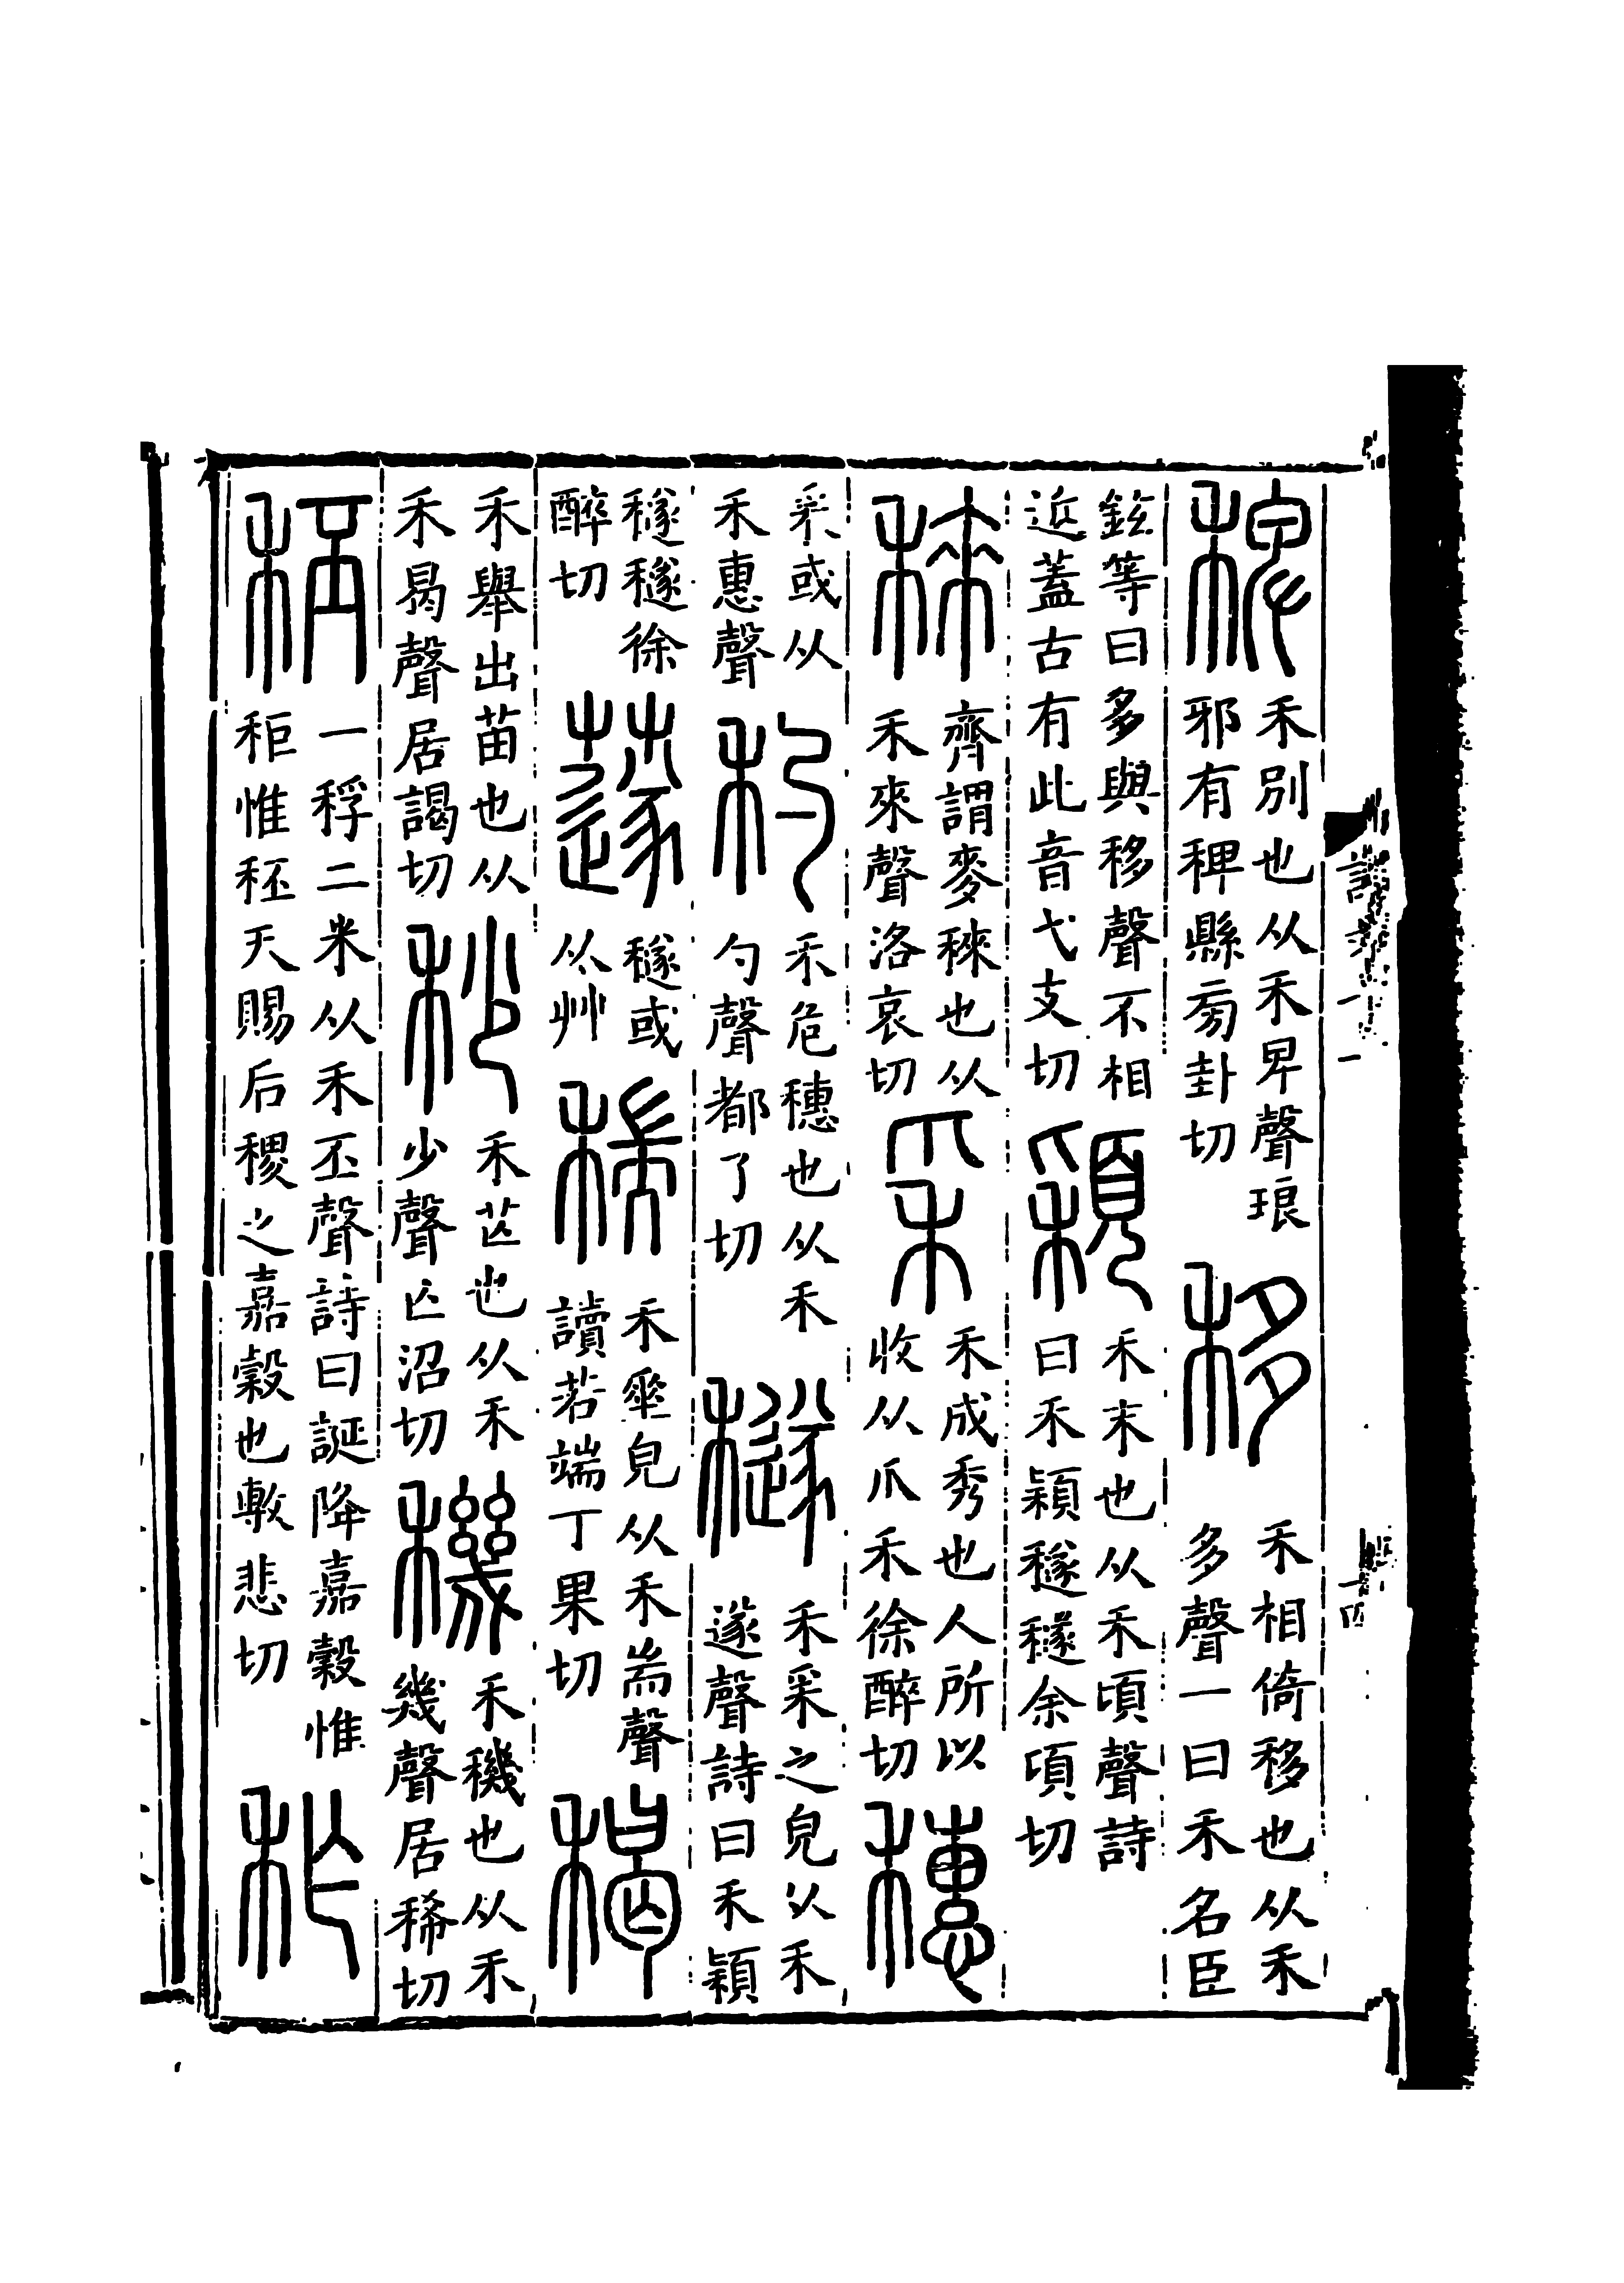 稗
禾別也从禾卑聲琅
邪有稗縣旁卦切
移
禾相倚移也从禾
多聲一曰禾名臣
鉉等曰多與移聲不相
近蓋古有此音弋支切
穎
禾末也从禾頃聲詩
曰禾穎穟穟余頃切
䅘
齊謂麥䅘也从
禾來聲洛哀切
采
禾成秀也人所以
收从爪禾徐醉切
穗
采或从
禾惠聲
𥝖
禾危穗也从禾
勺聲都了切
穟
禾采之皃从禾
遂聲詩曰禾穎
穟穟徐
醉切
蓫
穟或
从艸
𥠄
禾𠂹皃从禾耑聲
讀若端丁果切
𥠁
禾舉出苗也从
禾曷聲居謁切
秒
禾芒也从禾
少聲亡沼切
機
禾機也从禾
幾聲居稀切
秠
一稃二米从禾丕聲詩曰誕降嘉穀惟
秬惟秠天賜后稷之嘉穀也敷悲切
秨